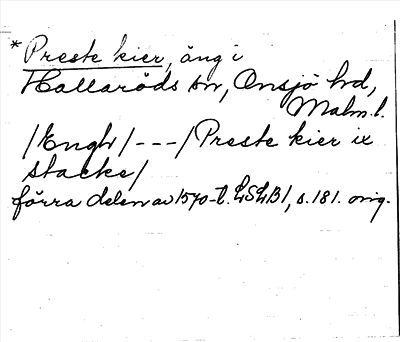 * Preste kier, äng i
Hallaröds sn, Onsjö hd,
Malm.l.
/Engh/---/Preste kier ix
stacke/
förra delen av 1570-t. LSLB1, s.181. orig.